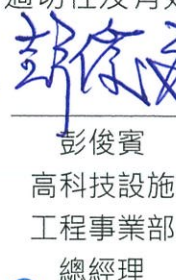 彭俊賓
高科技設施
工程事業部
總經理